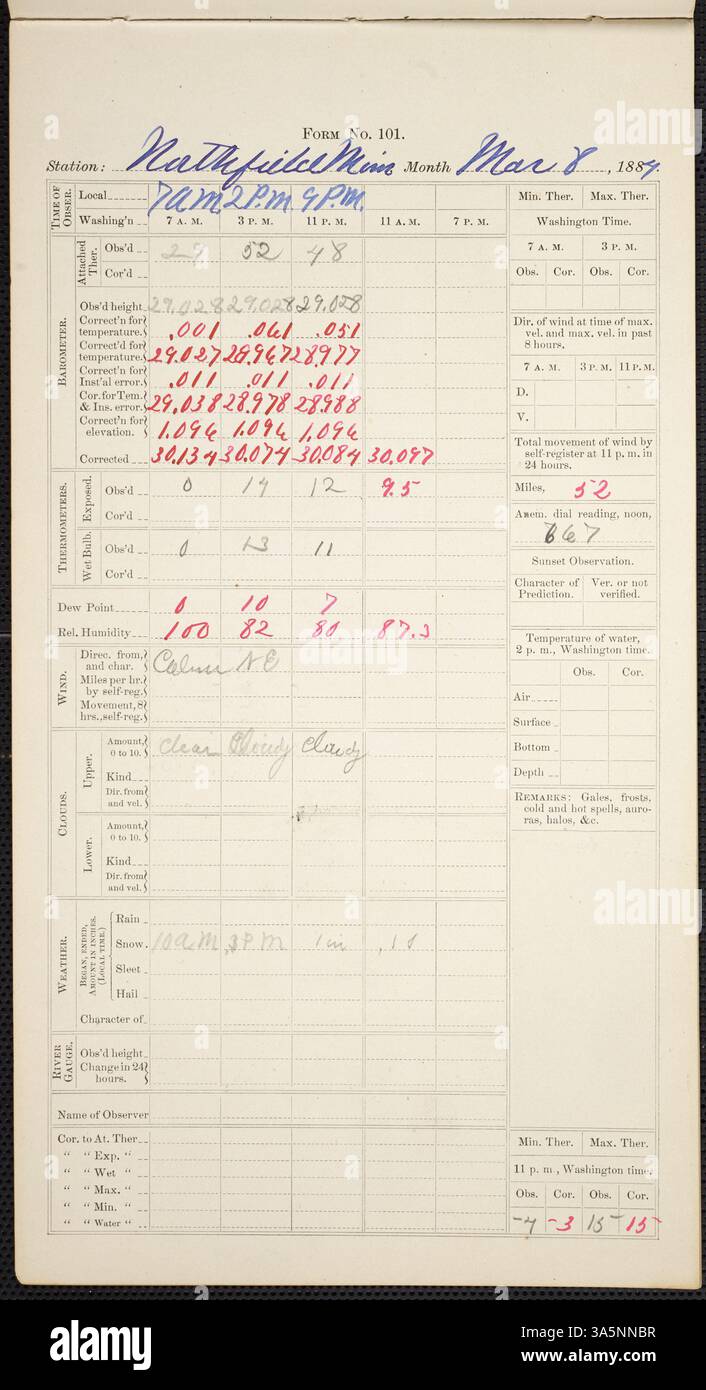 FORM NO. 101.
Station: Northfield Minn Month Mar 8, 1884.
TIME OF OBSER.
Local 7 a.m. 2 P.m. 9 P.m.
Washing'n 7 A. M. 3 P. M. 11 P. M. 11 A. M. 7 P. M.
Attached Ther.
Obs'd 29 52 48
Cor'd
BAROMETER.
Obs'd height 29.028 29.028 29.028
Correct'n for temperature. .001 .061 .051
Correct'd for temperature. 29.027 28.967 28.977
Correct'n for Inst'al error. .011 .011 .011
Cor. for Tem. & Ins. error. 29.038 28.978 28.988
Correct'n for elevation. 1.096 1.096 1.096
Corrected 30.134 30.074 30.084 30.097
THERMOMETERS.
Exposed.
Obs'd 0 14 12 9.5
Cor'd
Wet Bulb.
Obs'd 0 13 11
Cor'd
Dew Point 0 10 7
Rel. Humidity 100 82 80 87.3
WIND.
Direc. from, and char. Calm NE
Miles per hr. by self-reg.
Movement, 8 hrs., self-reg.
CLOUDS.
Upper.
Amount, 0 to 10. Clear Cloudy Cloudy
Kind
Dir. from and vel.
Lower.
Amount, 0 to 10.
Kind
Dir. from and vel.
WEATHER.
BEGAN, ENDED, AMOUNT IN INCHES. (LOCAL TIME.)
Rain
Snow. 10 a.m. 3 P.M 1 in .10
Sleet
Hail
Character of
RIVER GAUGE.
Obs'd height
Change in 24 hours.
Name of Observer
Cor. to At. Ther
" " Exp. "
" " Wet "
" " Max. "
" " Min. "
" " Water "
Min. Ther. Max. Ther.
Washington Time.
7 A. M. 3 P. M.
Obs. Cor. Obs. Cor.
Dir. of wind at time of max. vel. and max. vel. in past 8 hours.
7 A. M. 3 P. M. 11 P. M.
D.
V.
Total movement of wind by self-register at 11 p. m. in 24 hours.
Miles, 52
Anem. dial reading, noon,
767
Sunset Observation.
Character of Prediction. Ver. or not verified.
Temperature of water, 2 p. m., Washington time.
Obs. Cor.
Air
Surface
Bottom
Depth
REMARKS: Gales, frosts, cold and hot spells, auroras, halos, &c.
Min. Ther. Max. Ther.
11 p. m., Washington time.
Obs. Cor. Obs. Cor.
-4 -3 15 15
alamy
alamy
alamy
alamy
Image ID: 3A5NNBR
www.alamy.com